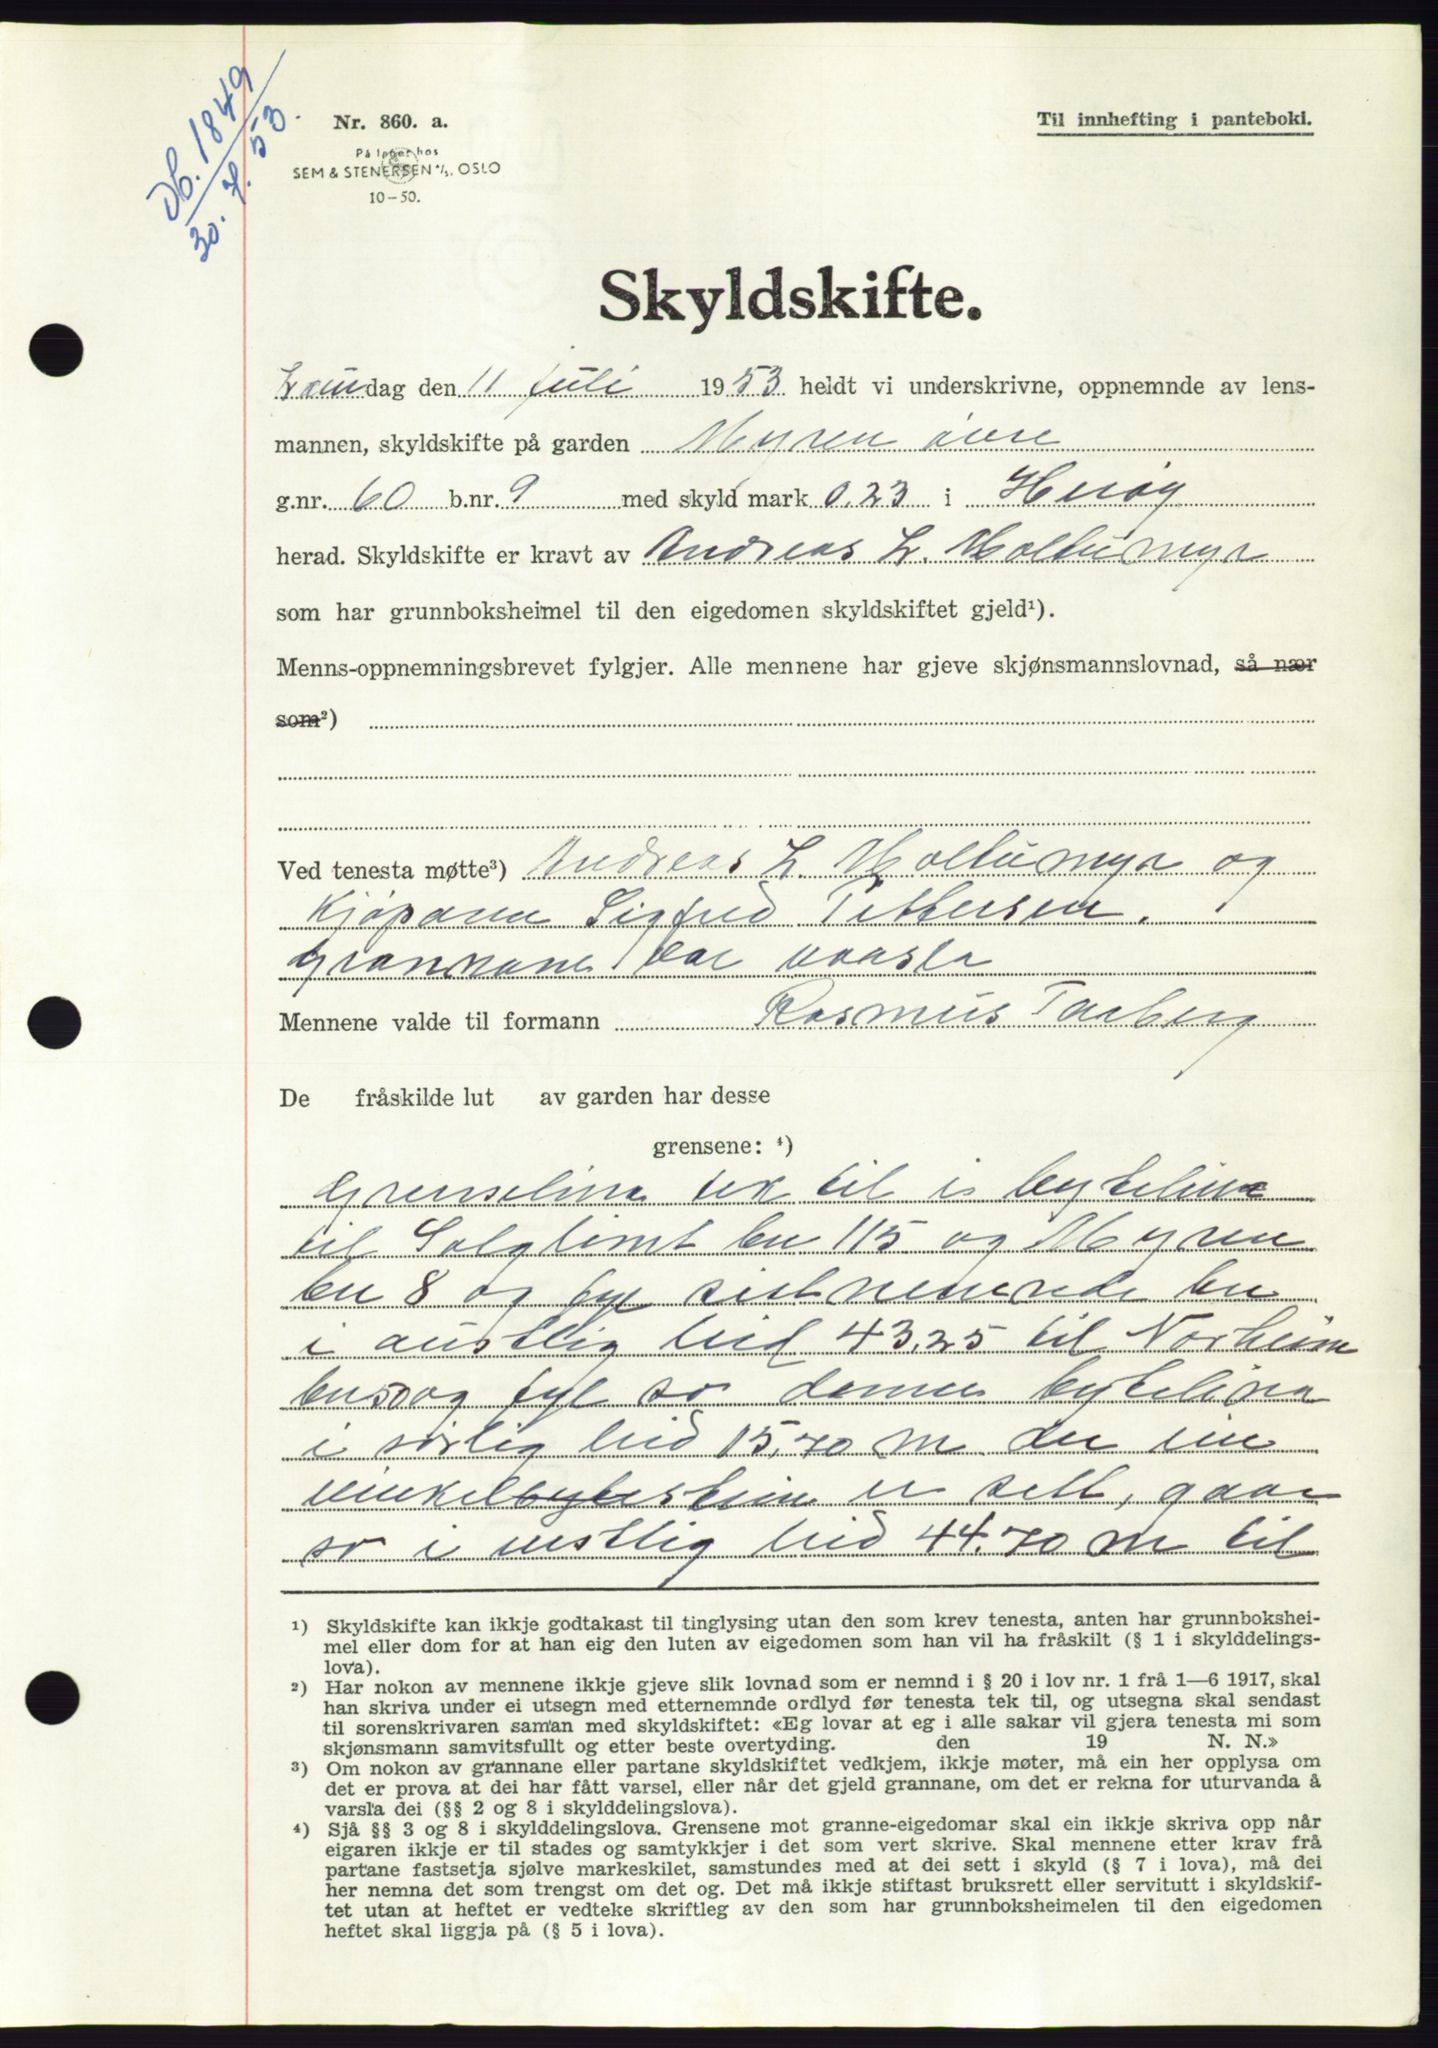 Db. 1849
30. 7. 53.
Nr. 860. a.
På lager hos
SEM & STENERSEN A/S, OSLO
10-50.
Til innhefting i panteboki.
Skyldskifte.
Laurdag den 11 juli 1953 heldt vi underskrivne, oppnemnde av lens-
mannen, skyldskifte på garden Myren övre
g.nr. 60 b.nr. 9 med skyld mark 0.23 i Heröy
herad. Skyldskifte er kravt av Andreas L. Moltumyr
som har grunnboksheimel til den eigedomen skyldskiftet gjeld¹).
Menns-oppnemningsbrevet fylgjer. Alle mennene har gjeve skjønsmannslovnad, så nær
som²)
Ved tenesta møtte³) Andreas L. Moltumyr og
Kjöparen Sigfred Pettersen.
Grannane var varsla
Mennene valde til formann Rasmus Tarberg
De fråskilde lut av garden har desse
grensene: ⁴)
Grenselina tek til i bytelina
til Solglimt bn 115 og Myren
bn 8 og fyl sistnemnde bn
i austlig leid 43,25 til Norheim
bn 50 og fyl so denne bytelina
i sörlig leid 15,70 m der ein
vinkelbytestein er sett, gaar
so i vestlig leid 44.70 m til
¹) Skyldskifte kan ikkje godtakast til tinglysing utan den som krev tenesta, anten har grunnbokshei-
mel eller dom for at han eig den luten av eigedomen som han vil ha fråskilt (§ 1 i skylddelings-
lova).
²) Har nokon av mennene ikkje gjeve slik lovnad som er nemnd i § 20 i lov nr. 1 frå 1—6 1917, skal
han skriva under ei utsegn med etternemnde ordlyd før tenesta tek til, og utsegna skal sendast
til sorenskrivaren saman med skyldskiftet: «Eg lovar at eg i alle sakar vil gjera tenesta mi som
skjønsmann samvitsfullt og etter beste overtyding. den 19 N. N.»
³) Om nokon av grannane eller partane skyldskiftet vedkjem, ikkje møter, må ein her opplysa om
det er prova at dei har fått varsel, eller når det gjeld grannane, om det er rekna for uturvanda å
varsla dei (§§ 2 og 8 i skylddelingslova).
⁴) Sjå §§ 3 og 8 i skylddelingslova. Grensene mot granne-eigedomar skal ein ikkje skriva opp når
eigaren ikkje er til stades og samtykkjer i det som vert skrive. Skal mennene etter krav frå
partane fastsetja sjølve markeskilet, samstundes med at dei sett i skyld (§ 7 i lova), må dei
her nemna det som trengst om det og. Det må ikkje stiftast bruksrett eller servitutt i skyldskif-
tet utan at heftet er vedteke skriftleg av den som har grunnboksheimelen til den eigedomen
heftet skal liggja på (§ 5 i lova).